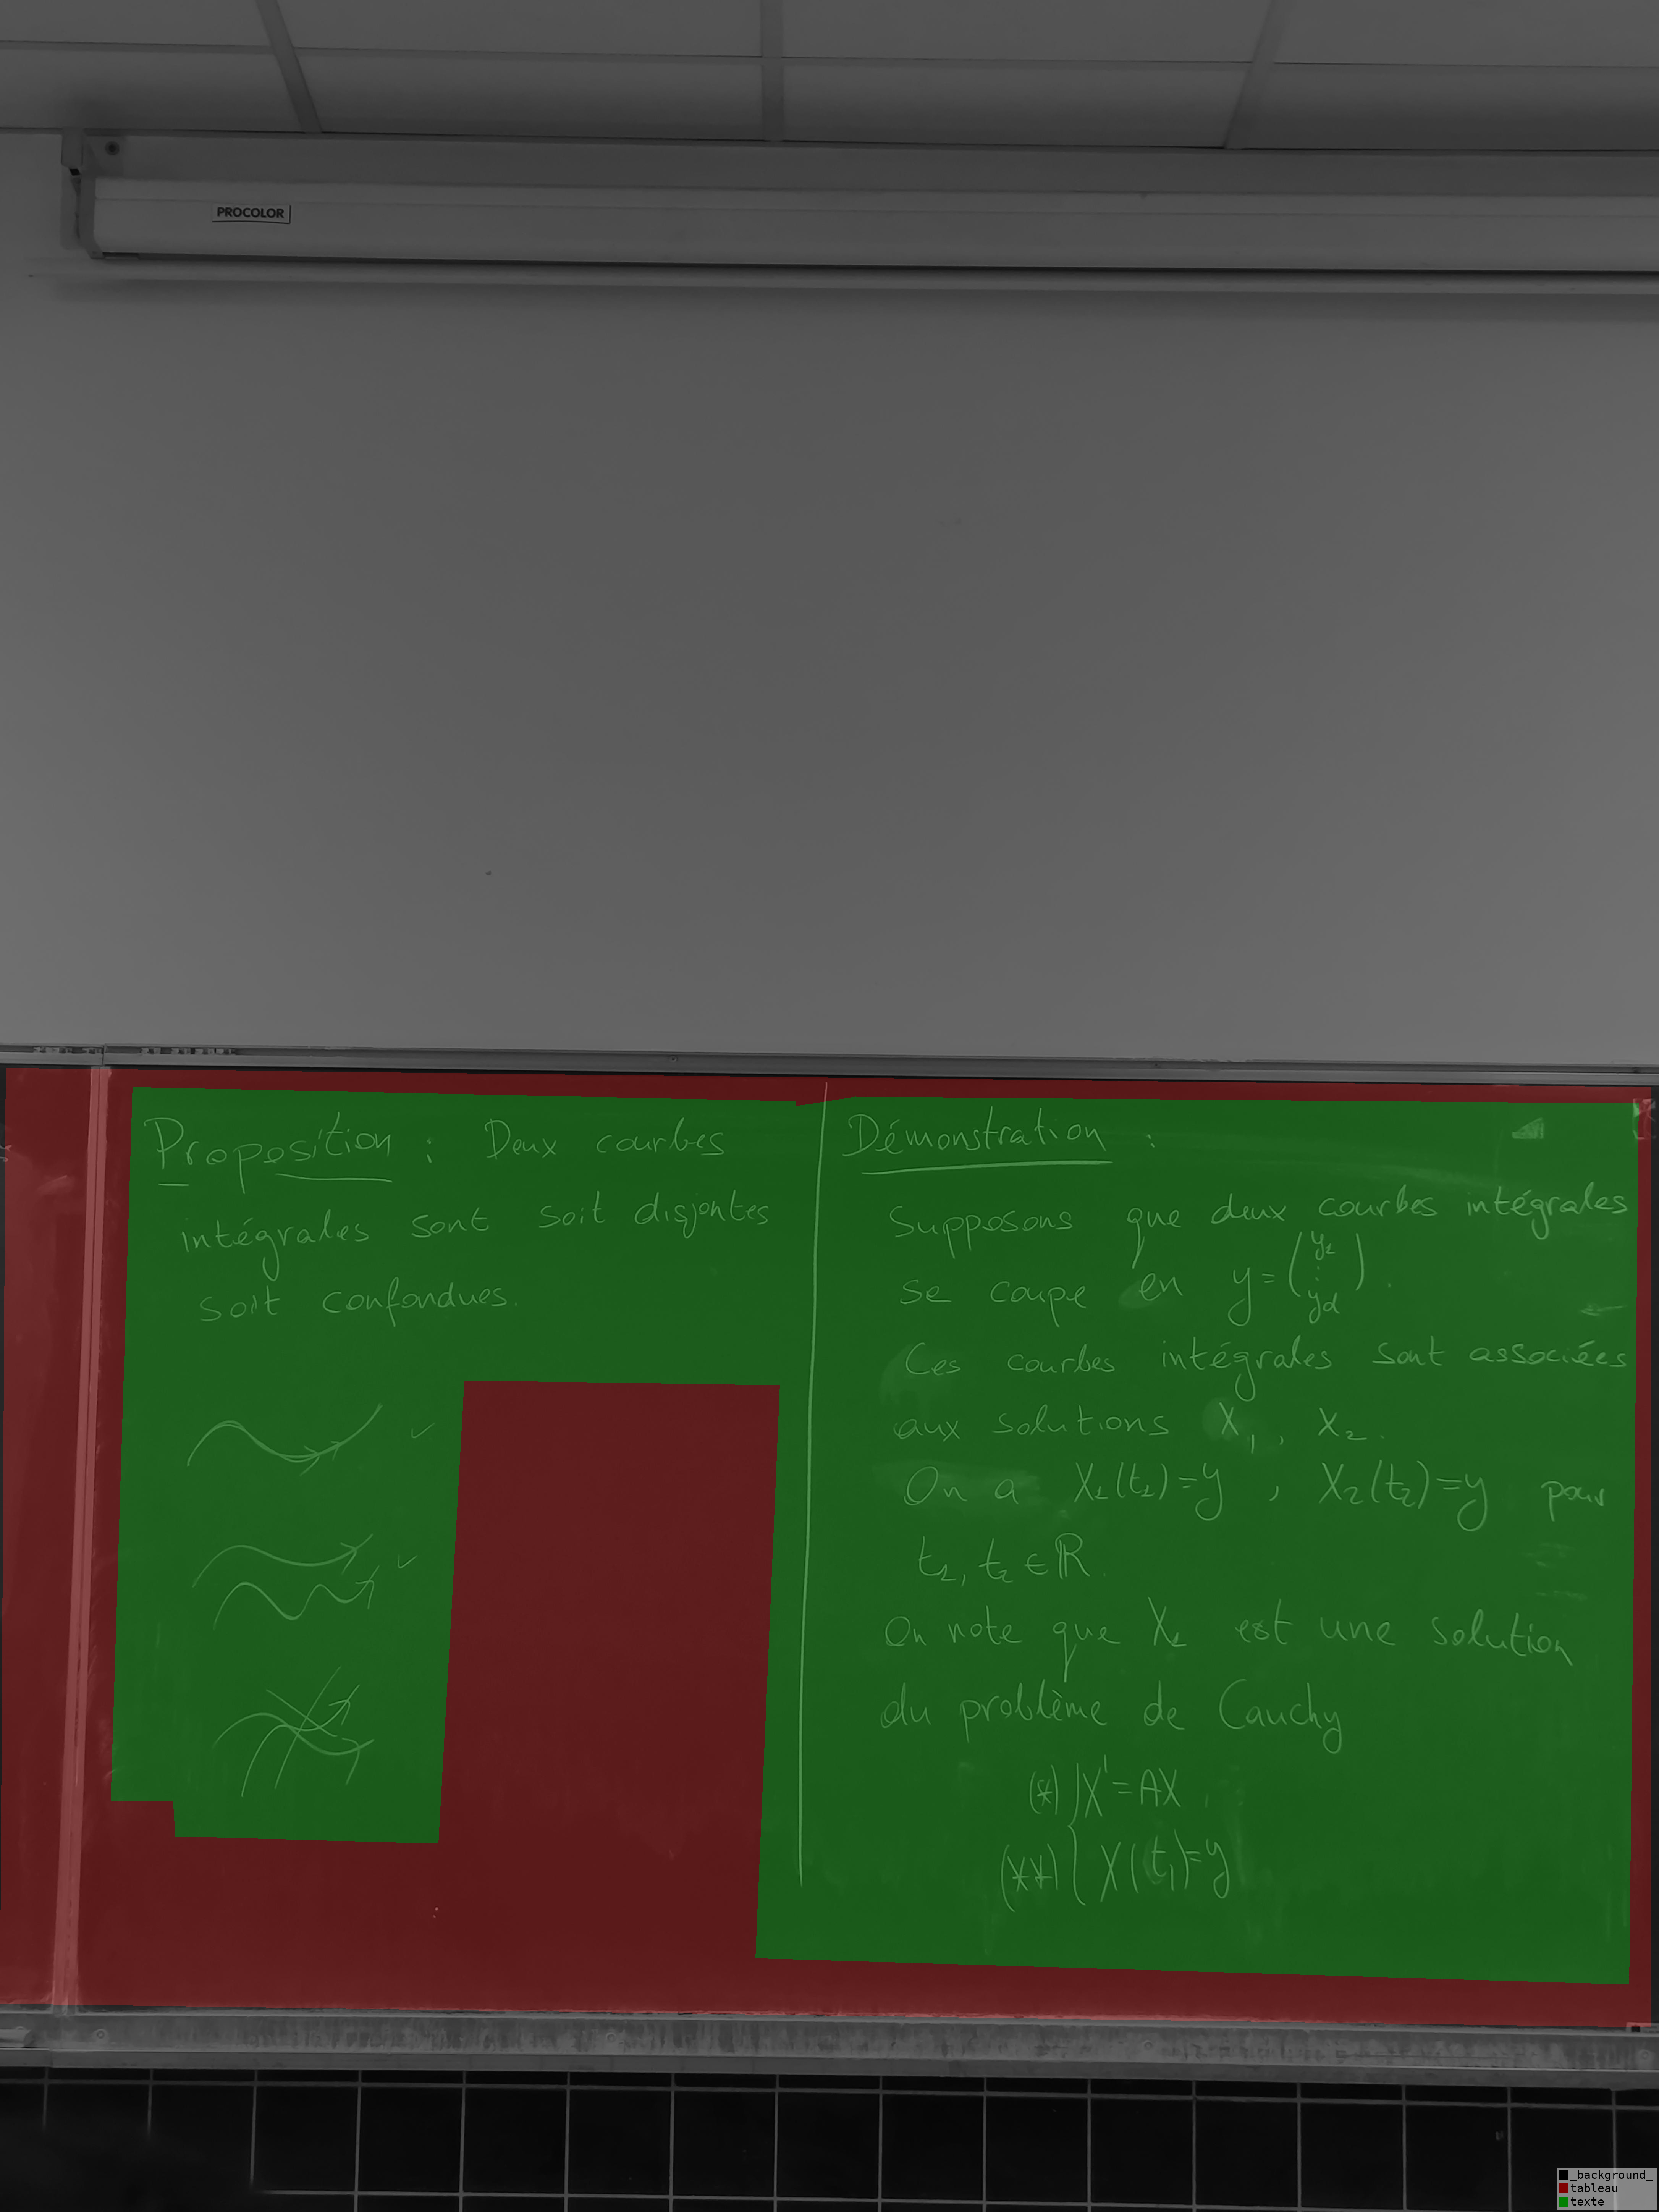 PROCOLOR
Proposition : Deux courbes
intégrales sont soit disjontes
soit confondues.
Démonstration :
Supposons que deux courbes intégrales
se coupe en y = (y₁ ⋮ yd).
Ces courbes intégrales sont associées
aux solutions X₁, X₂.
On a X₁(t₁)=y , X₂(t₂)=y pour
t₁, t₂ ∈ ℝ.
On note que X₁ est une solution
du problème de Cauchy
(*) { X' = AX
(**) { X(t₁)=y
_background_
tableau
texte